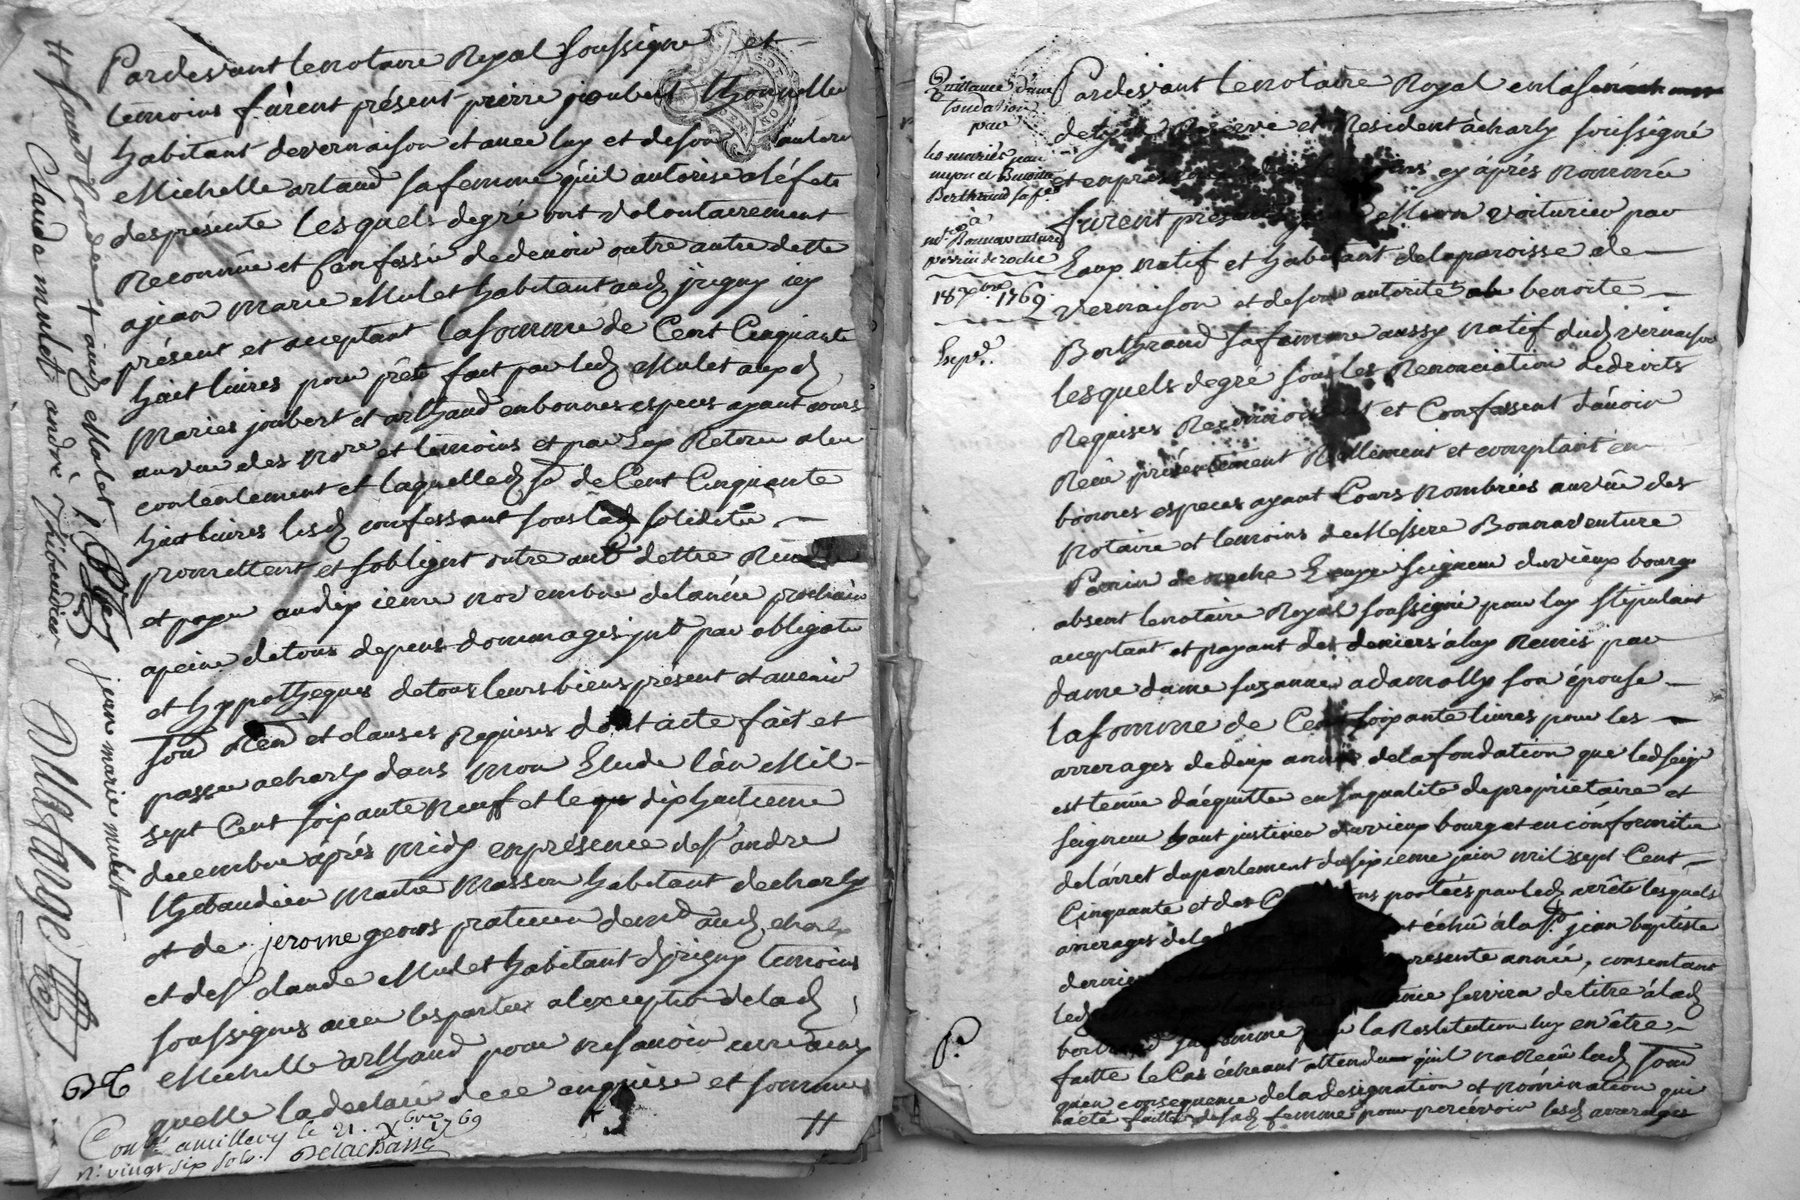 Pardevant le notaire Royal soussigné et
témoins fûrent présent pierre joubert
habitant de vernaison et avec luy et de son autorité
Michelle artaud sa femme qu'il autorise a l'éfete
des présente lesquels de gré ont volontairement
Reconnüe et Confessée de devoir outre autre dette
a jean Marie Mulet habitant aud jrigny icy
présent et acceptant la somme de Cent Cinquante
huit livres pour prêt fait par led Mulet auxd
Mariés joubert et arthaud en bonnes especes ayant cours
au vüe des nore et témoins et par Eux Retirée a leur
contentement et laquelle d se de Cent Cinquante
huit livres lesd confessant sous lad solidité
promettent et s'obligent outre aut dettre
et payer au dix ieme novembre de l'année prochain
a peine de tous depens dommages jnt par obligate
et hypotheques de tous leurs biens présent et avenir
sous Ren et clauses Requises dont acte fait et
passé a charly dans mon Etude l'an Mil
sept Cent soixante Neuf et le dix huitieme
decembre áprés midy en présence de sr andré
thibaudier Maitre Masson habitant de charly
et de jerome geours praticien dem.t aud charly
et de sr claude Mulet habitant d'jrigny temoins
soussignés avec les parties a l'exception de lad
Michelle arthaud pour ne sçavoir
quelle la declaré de ce enquise et sommée
//
Conlé a millery le 21. xbre 1769
R. vingt six sols. Delachassg
// Claude mulet andré Thibaudier
jean marie mulet
Quittance d'une
fondation
par
les mariés jean
mion et Benoite
Berthrand sa fe
à
mre Bonnaventure
perrin de roche
18 xbre 1769.
Expé.
Pardevant le notaire Royal en la
de Reservé et Resident à charly soussigné
et en présence ey áprés nommée
fûrent présent Mion voiturier par
Eaux natif et habitant de la paroisse de
vernaison et de son autorité benoite
Berthrand sa femme aussy natif dud vernaison
lesquels de gré sous les Renonciation de droits
Requises Reconnoissent et Confessent d'avoir
Reçu présentement Réellement et comptant en
bonnes especes ayant Cours nombrées au vüe des
notaire et témoins de Messire Bonnaventure
Perrin de roche Ecuyer seigneur du vieux bourg
absent le notaire Royal soussigné pour luy stipulant
acceptant et payant des deniers a luy Remis par
dame dame suzanne adamolly son épouse
la somme de Cent soixante livres pour les
arrerages de deux année de la fondation que led seigr
est tenüe d'acquitter en sa qualité de propriétaire et
seigneur haut justicier du vieux bourg et en conformité
de l'arret du parlement du sixieme juin mil sept Cent
Cinquante et des portées par led arrêts lesquels
arrerages de lad échû á la st jean baptiste
dernier présente année, consentant
led servira de titre á lad
sa femme pour la Restitution luy en être
faitte le Cas écheant attendu qu'il n'a Reçû lad somme
qu'en consequence de la designation et nomination qui
a été faitte de sad femme pour percevoir lesd arrerages